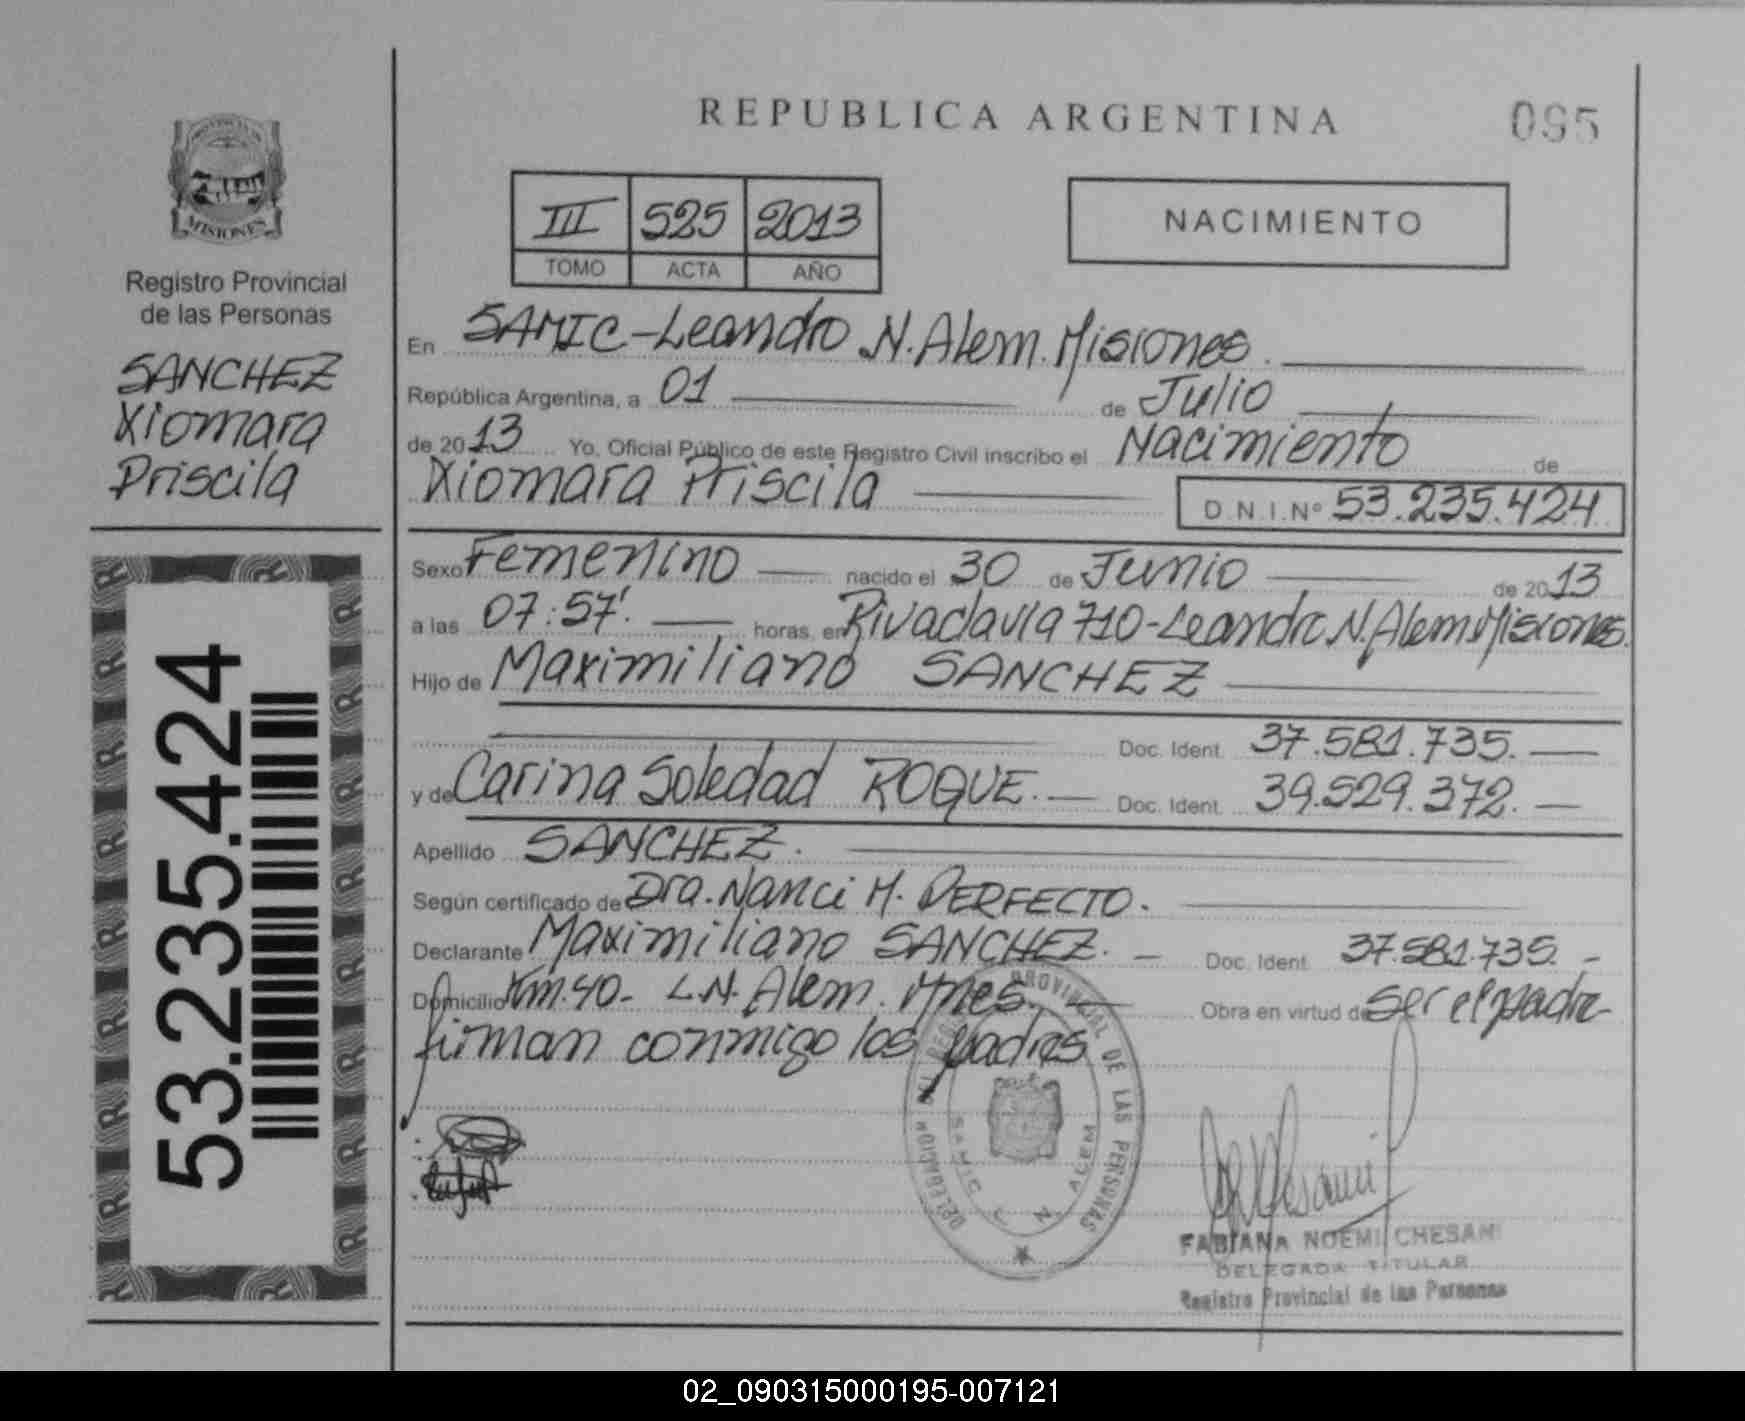 REPUBLICA ARGENTINA
095
PROVINCIA DE
MISIONES
Registro Provincial
de las Personas
SANCHEZ
Xiomara
Priscila
53.235.424
III 525 2013
TOMO ACTA AÑO
NACIMIENTO
En SAMIC-Leandro N. Alem. Misiones.
República Argentina, a 01 de Julio
de 2013 Yo, Oficial Público de este Registro Civil inscribo el Nacimiento de
Xiomara Priscila D.N.I.Nº 53.235.424
Sexo Femenino nacido el 30 de Junio de 2013
a las 07:57'. horas, en Rivadavia 710-Leandro N. Alem Misiones.
Hijo de Maximiliano SANCHEZ
Doc. Ident. 37.581.735.
y de Carina Soledad ROQUE. Doc. Ident. 39.529.372.
Apellido SANCHEZ.
Según certificado de Dra. Nanci M. PERFECTO.
Declarante Maximiliano SANCHEZ. Doc. Ident. 37.581.735.
Domicilio Km.40- L.N. Alem. Mnes. Obra en virtud de ser el padre
firman conmigo los padres
DELEGACION DEL REG PROVINCIAL DE LAS PERSONAS
SAMIC L N ALEM
FABIANA NOEMI CHESANI
DELEGADA TITULAR
Registro Provincial de las Personas
02_090315000195-007121